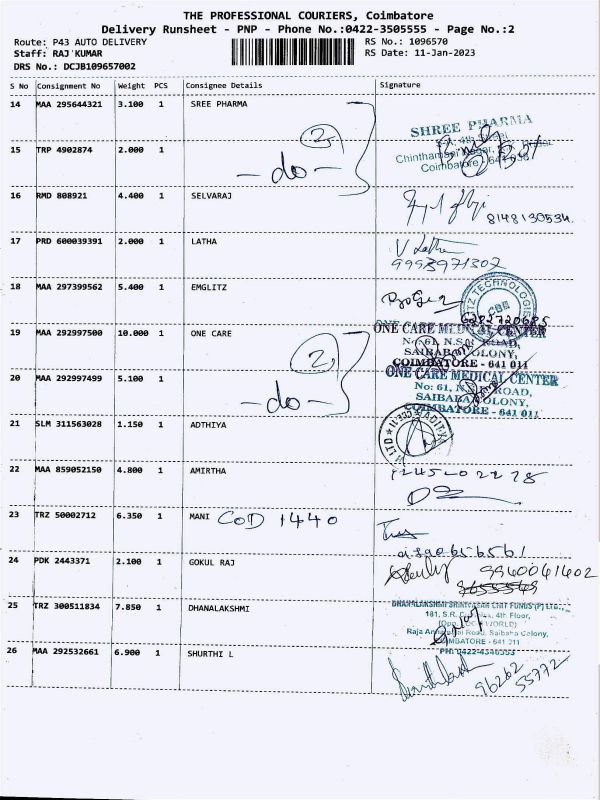 THE PROFESSIONAL COURIERS, Coimbatore
Delivery Runsheet - PNP - Phone No.:0422-3505555 - Page No.:2
Route: P43 AUTO DELIVERY
RS No.: 1096570
Staff: RAJ KUMAR
RS Date: 11-Jan-2023
DRS No.: DCJB109657002
S No Consignment No Weight PCS Consignee Details Signature
14 MAA 295644321 3.100 1 SREE PHARMA
SHREE PHARMA
2
15 TRP 4902874 2.000 1 -do-
Coimbatore
16 RMD 808921 4.400 1 SELVARAJ
8148130534
17 PRD 600039391 2.000 1 LATHA
V Latha
9993971302
18 MAA 297399562 5.400 1 EMGLITZ
CBE
19 MAA 292997500 10.000 1 ONE CARE
ONE CARE MEDICAL CENTER
No: 61, N.S.R. ROAD,
SAIBABA COLONY,
COIMBATORE - 641 011
2
20 MAA 292997499 5.100 1 -do-
ONE CARE MEDICAL CENTER
No: 61, ROAD,
SAIBABA COLONY,
COIMBATORE - 641 011
21 SLM 311563028 1.150 1 ADTHIYA
22 MAA 859052150 4.800 1 AMIRTHA
23 TRZ 50002712 6.350 1 MANI COD 1440
24 PDK 2443371 2.100 1 GOKUL RAJ
9960061402
25 TRZ 300511834 7.850 1 DHANALAKSHMI
DHANALAKSHMI SRINIVASAN CHIT FUNDS (P) LTD.,
181, S.R. 4th Floor,
Road, Saibaba Colony,
COIMBATORE - 641 011
PH: 0422-4340353
26 MAA 292532661 6.900 1 SHURTHI L
96262
55772